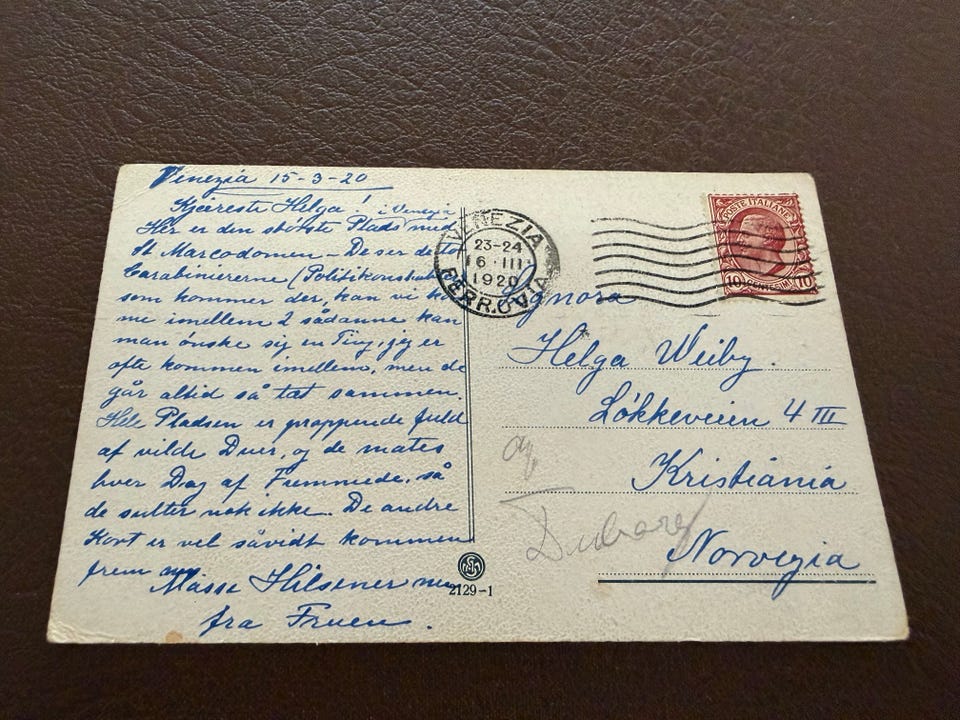 Venezia 15-3-20
Kjæreste Helga! i Venezia
Her er den største Plads med
St Marcodomen - De ser de to
Carabiniererne (Politikonstabler
som kommer der, kan vi ko
me imellem 2 sådanne kan
man ønske sig en Ting, jeg er
ofte kommen imellem, men de
går altid så tæt sammen.
Hele Pladsen er proppende fuld
af vilde Duer, og de mates
hver Dag af Fremmede, så
de sulter nok ikke. De andre
Kort er vel såvidt kommen
frem
Masse Hilsener
fra Fruen.
VENEZIA
23-24
16·III
1920
FERROVIA
POSTE ITALIANE
10 CENTESIMI 10
Signora
Helga Weiby.
Løkkeveien 4 III
Kristiania
Norvegia
2129-1